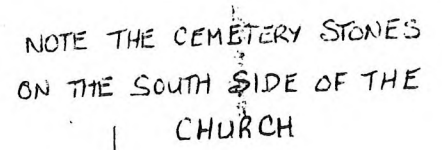 NOTE THE CEMETERY STONES
ON THE SOUTH SIDE OF THE
CHURCH